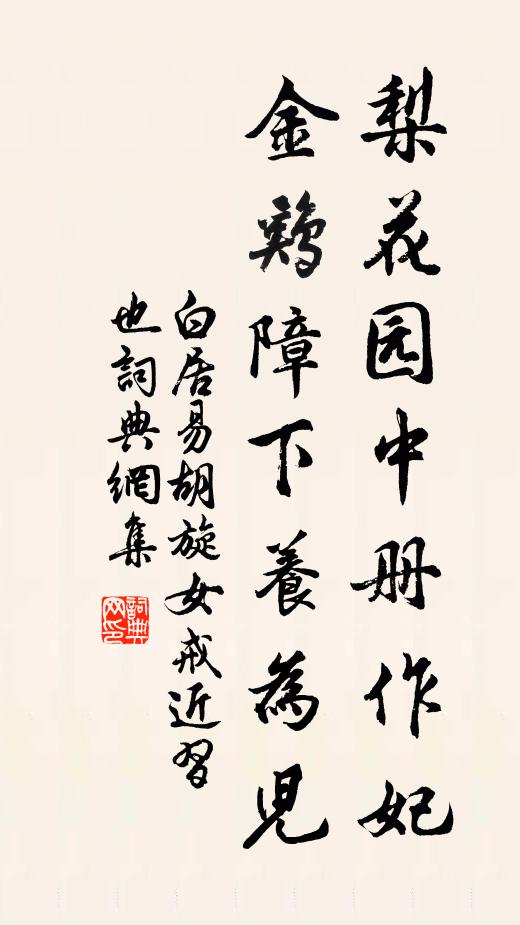 梨花园中册作妃
金鷄障下養為児
白居易胡旋女戒近習
也詞典網集
詞典
网印